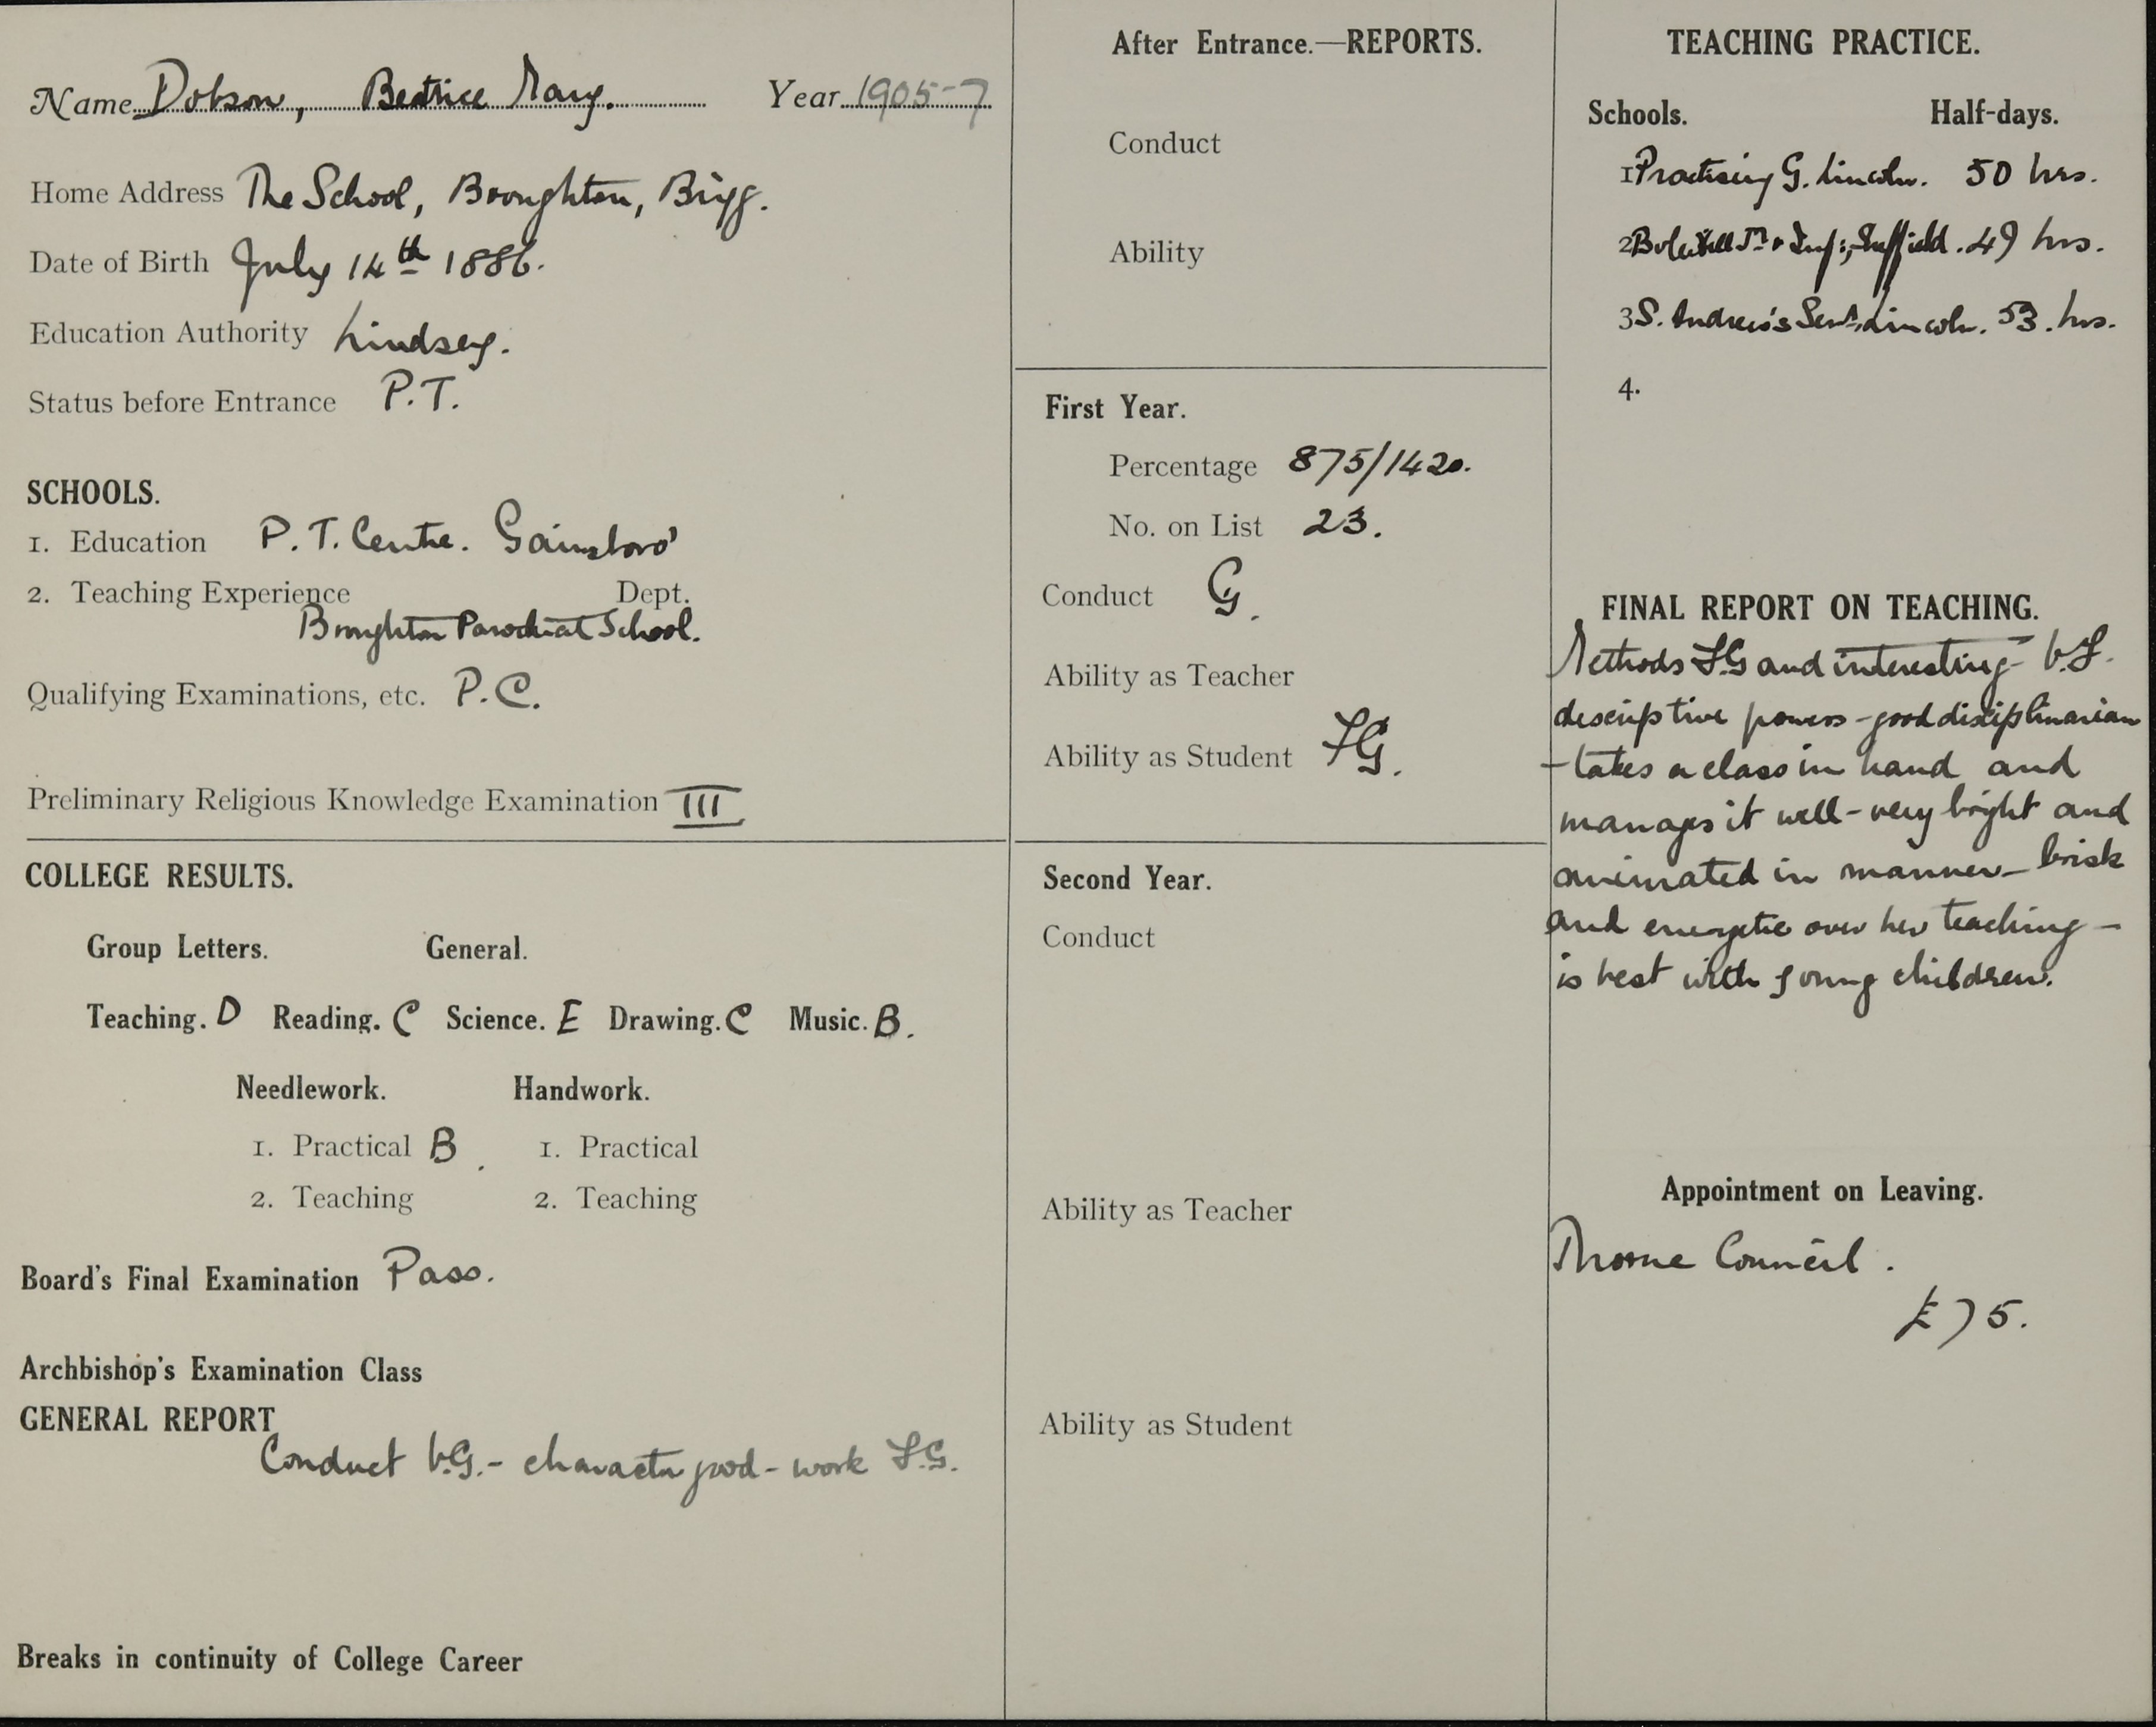 Name Dobson, Beatrice Mary. Year 1905-7
Home Address The School, Broughton, Brigg.
Date of Birth July 14th 1886.
Education Authority Lindsey.
Status before Entrance P.T.
SCHOOLS.
1. Education P.T. Centre. Gainsboro'
2. Teaching Experience Dept.
Broughton Parochial School.
Qualifying Examinations, etc. P.C.
Preliminary Religious Knowledge Examination III
COLLEGE RESULTS.
Group Letters. General.
Teaching. D Reading. C Science. E Drawing. C Music. B.
Needlework. Handwork.
1. Practical B. 1. Practical
2. Teaching 2. Teaching
Board's Final Examination Pass.
Archbishop's Examination Class
GENERAL REPORT
Conduct V.G. - character good - work F.G.
Breaks in continuity of College Career
After Entrance.—REPORTS.
Conduct
Ability
First Year.
Percentage 875/1420.
No. on List 23.
Conduct G.
Ability as Teacher
Ability as Student FG.
Second Year.
Conduct
Ability as Teacher
Ability as Student
TEACHING PRACTICE.
Schools. Half-days.
1 Practising G. Lincoln. 50 hrs.
2 Inf:, Sheffield. 49 hrs.
3 S. Andrew's Lincoln. 53. hrs.
4.
FINAL REPORT ON TEACHING.
Methods F.G and interesting - V.F.
descriptive powers - good disciplinarian
- takes a class in hand and
manages it well - very bright and
animated in manner - brisk
and energetic over her teaching -
is best with young children.
Appointment on Leaving.
Thorne Council.
£75.